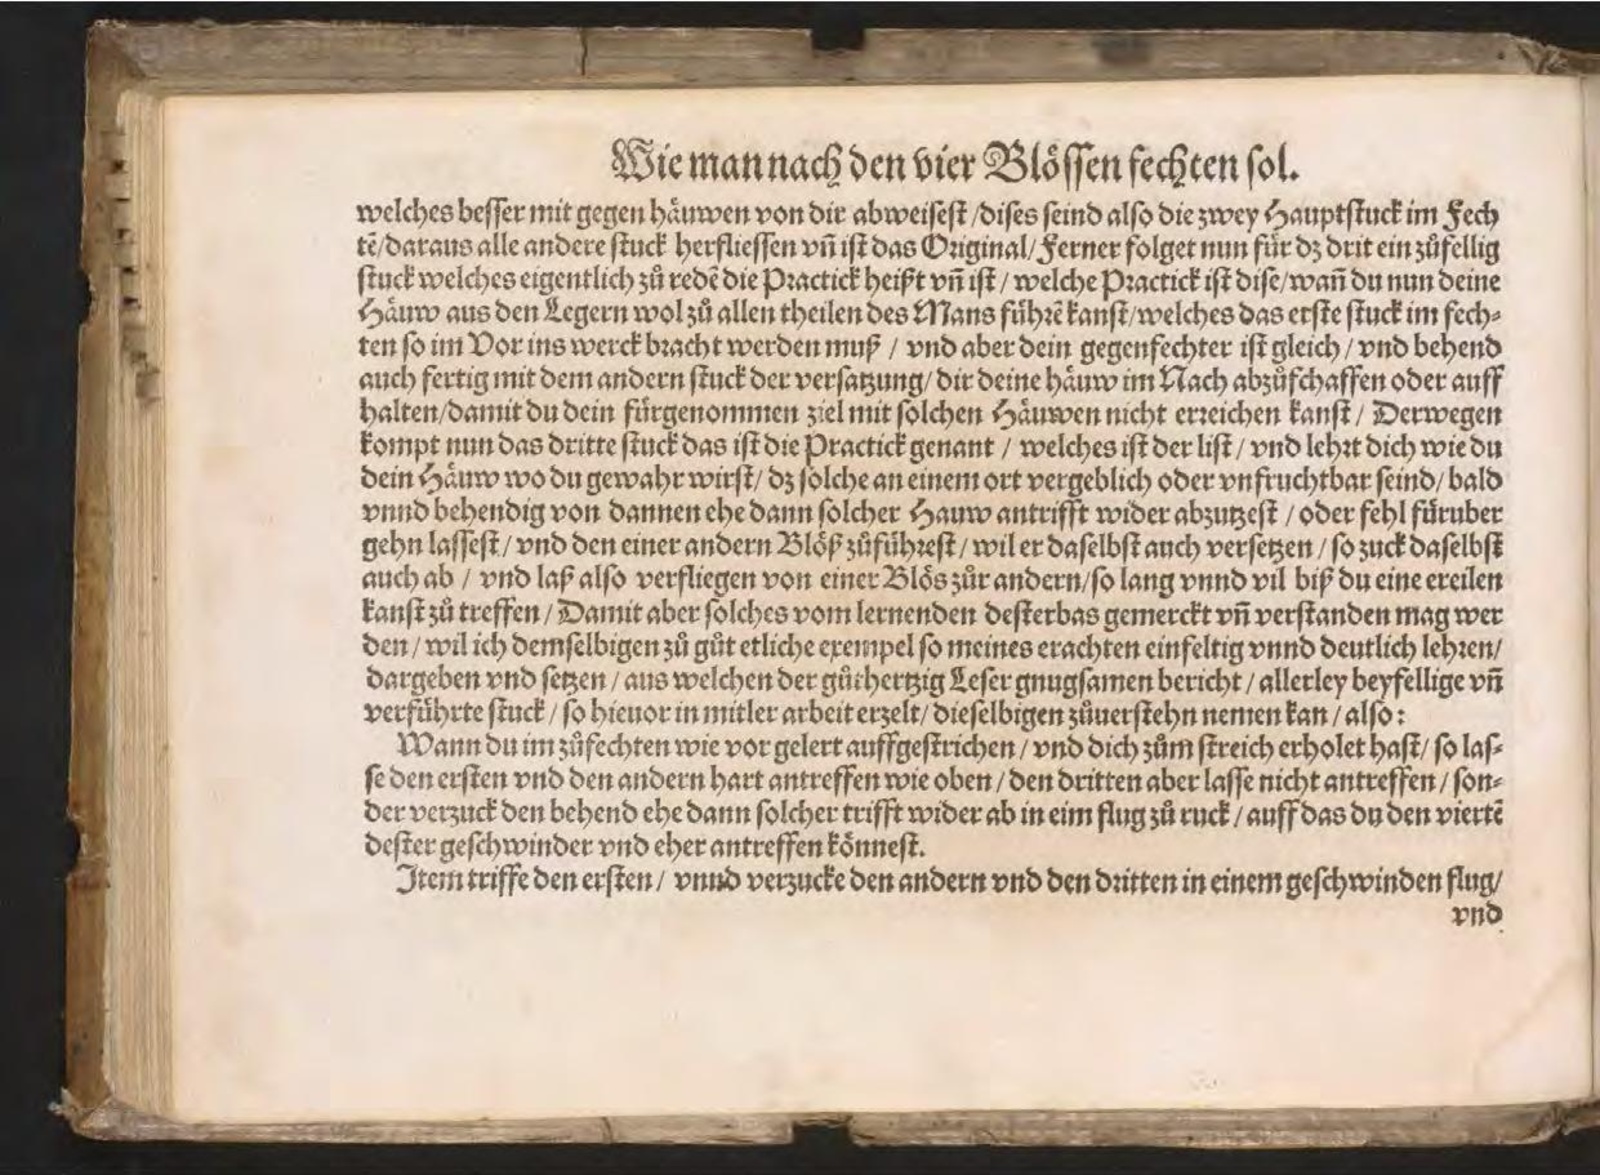 Wie man nach den vier Blössen fechten sol.
welches besser mit gegen häuwen von dir abweisest / dises seind also die zwey Hauptstuck im Fech
tē / daraus alle andere stuck herfliessen vn̄ ist das Original / Ferner folget nun für dz drit ein zůfellig
stuck welches eigentlich zů redē die Practick heißt vn̄ ist / welche Practick ist dise / wan̄ du nun deine
Häuw aus den Legern wol zů allen theilen des Mans führē kanst / welches das erste stuck im fech-
ten so im Vor ins werck bracht werden muß / vnd aber dein gegenfechter ist gleich / vnd behend
auch fertig mit dem andern stuck der versatzung / dir deine häuw im Nach abzůschaffen oder auff
halten / damit du dein fürgenommen ziel mit solchen Häuwen nicht erreichen kanst / Derwegen
kompt nun das dritte stuck das ist die Practick genant / welches ist der list / vnd lehrt dich wie du
dein Häuw wo du gewahr wirst / dz solche an einem ort vergeblich oder vnfruchtbar seind / bald
vnnd behendig von dannen ehe dann solcher Hauw antrifft wider abzutzest / oder fehl füruber
gehn lassest / vnd den einer andern Blöß zůführest / wil er daselbst auch versetzen / so zuck daselbst
auch ab / vnd laß also verfliegen von einer Blös zůr andern / so lang vnnd vil biß du eine ereilen
kanst zů treffen / Damit aber solches vom lernenden desterbas gemerckt vn̄ verstanden mag wer
den / wil ich demselbigen zů gůt etliche exempel so meines erachten einfeltig vnnd deutlich lehren /
dargeben vnd setzen / aus welchen der gůthertzig Leser gnugsamen bericht / allerley beyfellige vn̄
verführte stuck / so hieuor in mitler arbeit erzelt / dieselbigen zůuerstehn nemen kan / also:
Wann du im zůfechten wie vor gelert auffgestrichen / vnd dich zům streich erholet hast / so las-
se den ersten vnd den andern hart antreffen wie oben / den dritten aber lasse nicht antreffen / son-
der verzuck den behend ehe dann solcher trifft wider ab in eim flug zů ruck / auff das du den viertē
dester geschwinder vnd eher antreffen könnest.
Item triffe den ersten / vnnd verzucke den andern vnd den dritten in einem geschwinden flug /
vnd